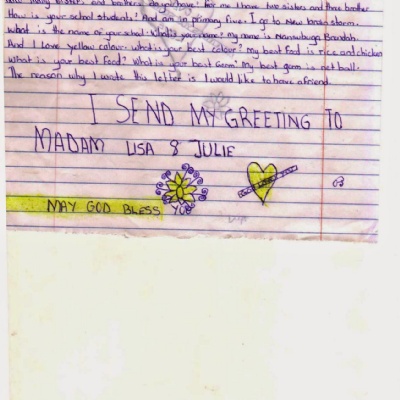 many sisters and brothers do you have? For me I have two sisters and three brother
How is your school students? And am in primary five. I go to New brain storm.
what is the name of your school? What is your name? my name is Namubuga Brendah.
And I love yellow colour. what is your best colour? my best food is rice and chicken
what is your best food? What is your best Germ? My best germ is net ball.
The reason why I wrote this letter is I would like to have a friend.
I SEND MY GREETING TO
MADAM LISA & JULIE
MAY GOD BLESS YOU